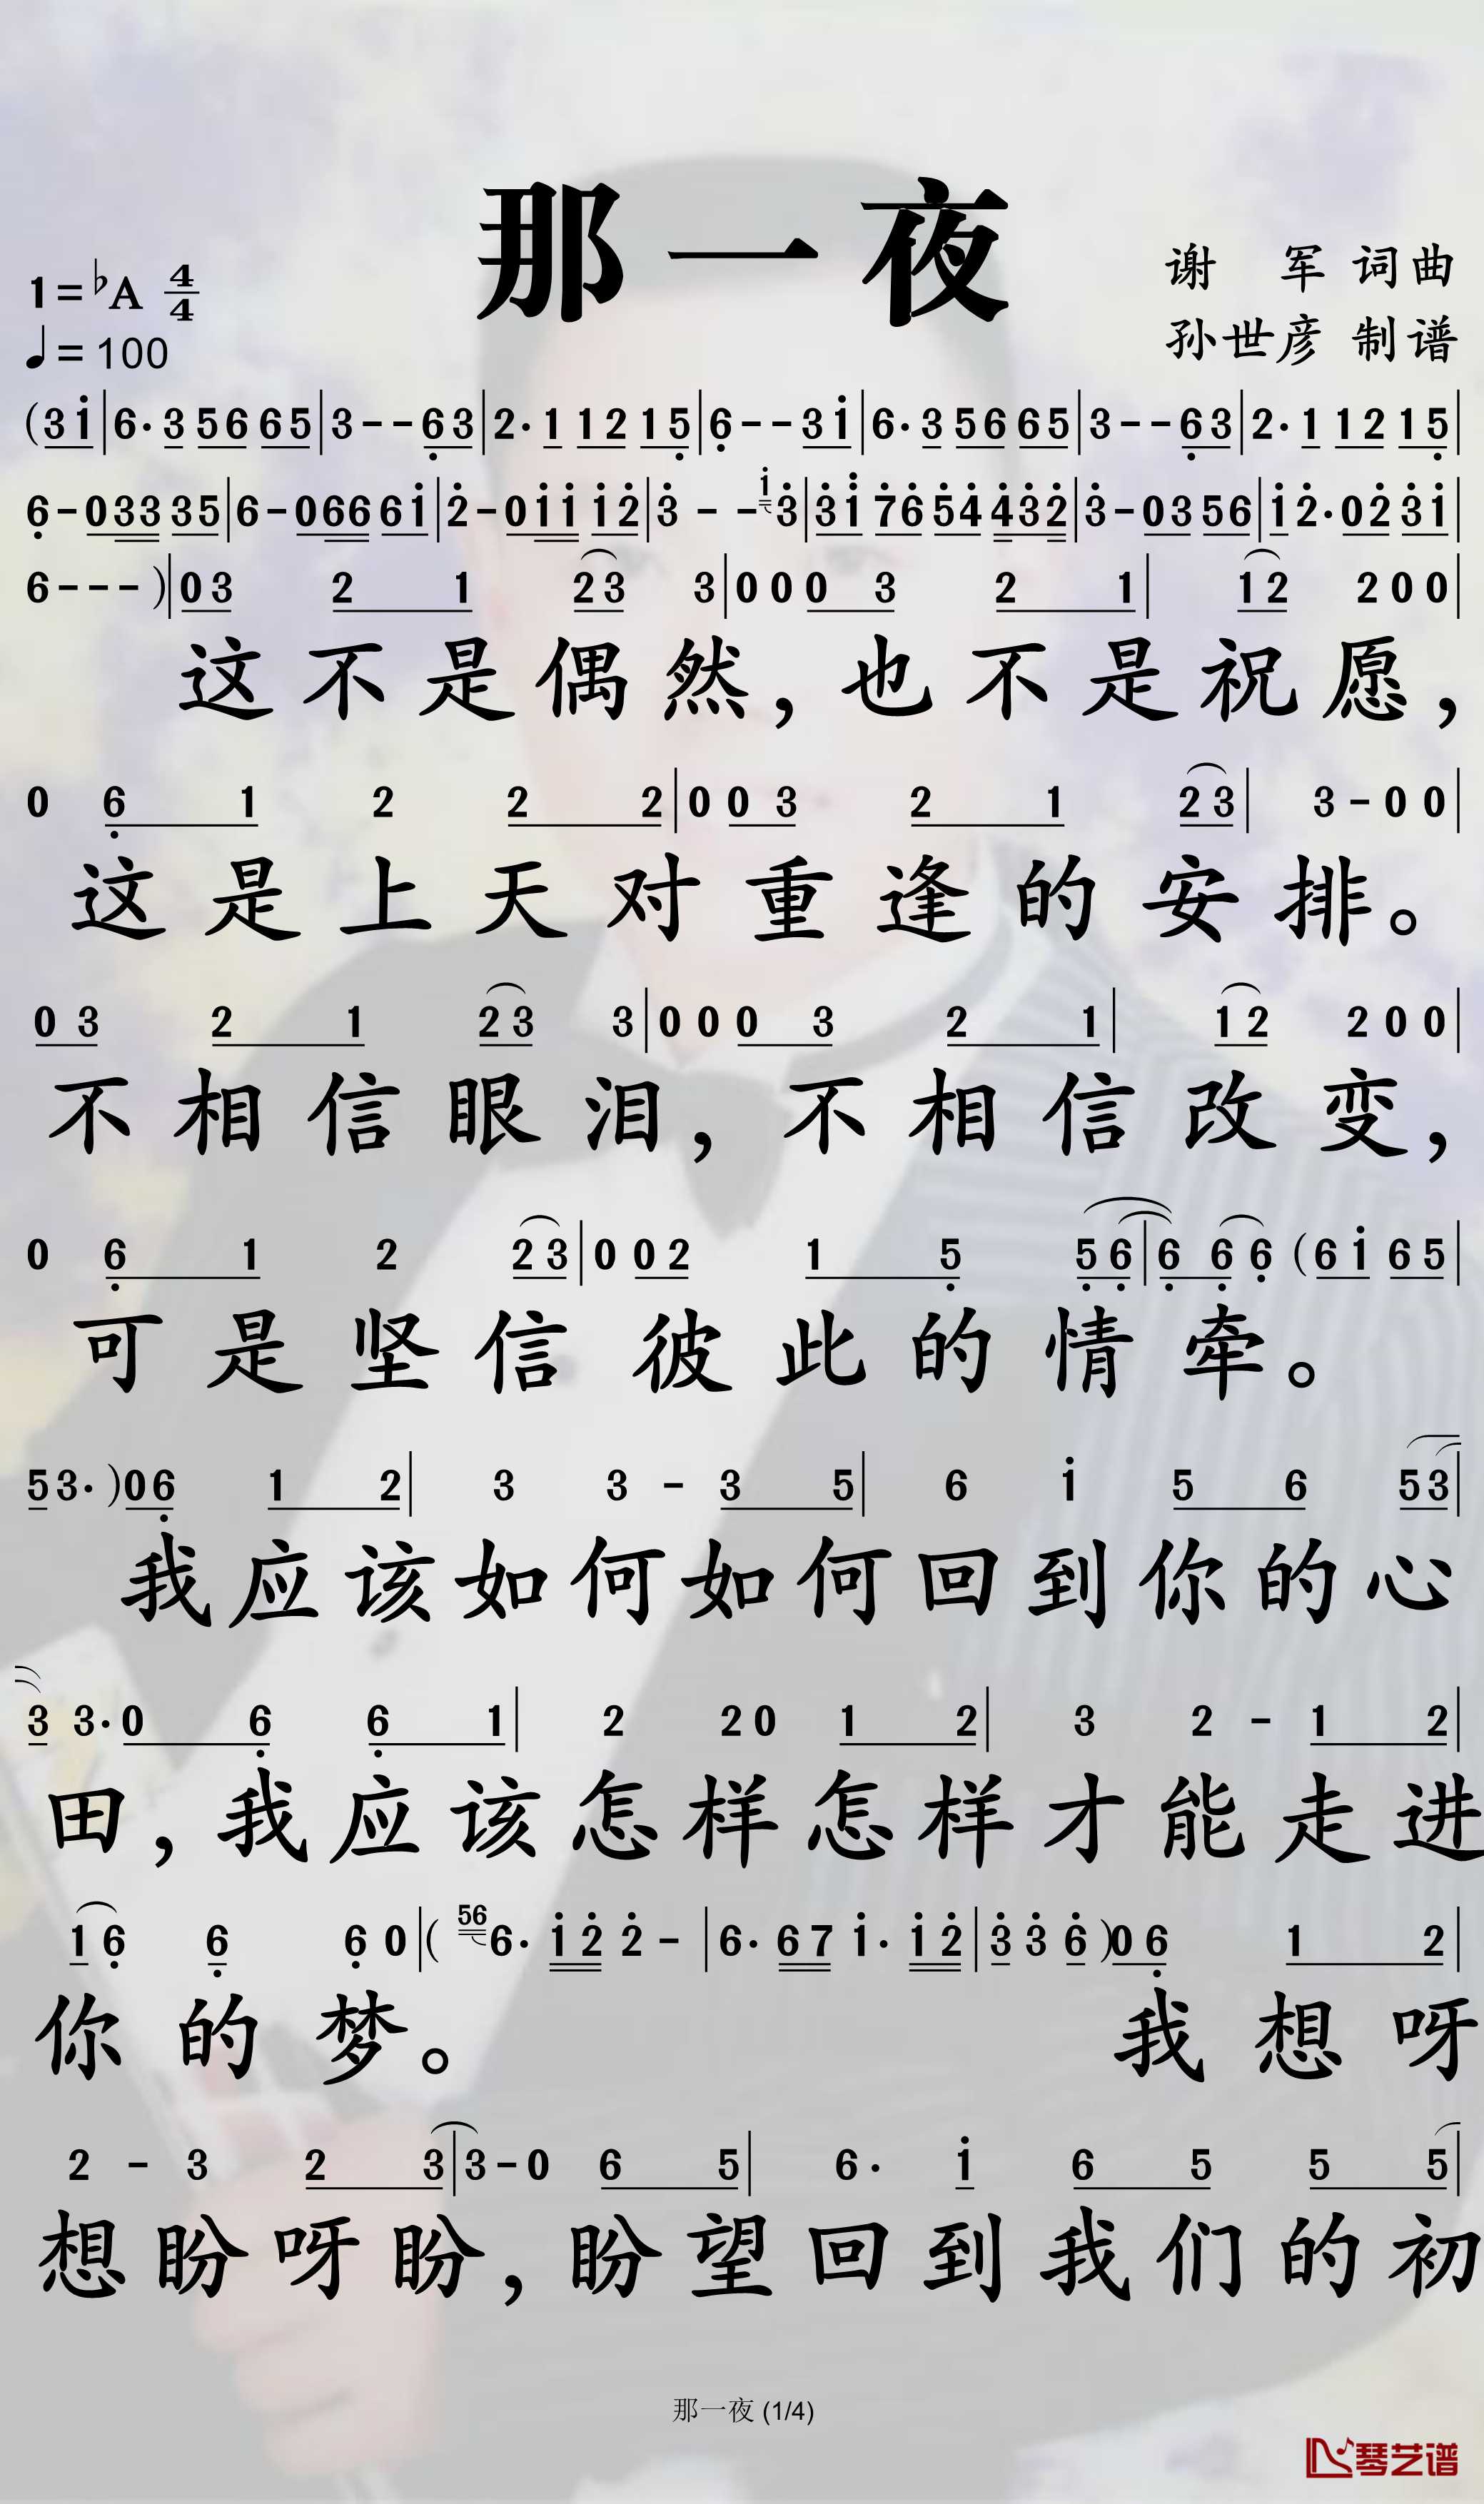 那一夜
1=♭A 4/4
谢 军 词曲
♩=100
孙世彦 制谱
(3 i|6· 3 5 6 6 5|3 - - 6 3|2· 1 1 2 1 5|6 - - 3 i|6· 3 5 6 6 5|3 - - 6 3|2· 1 1 2 1 5|
6 - 0 3 3 3 5|6 - 0 6 6 6 i|2 - 0 i i i 2|3 - - i 3|3 i 7 6 5 4 4 3 2|3 - 0 3 5 6|i 2· 0 2 3 i|
6 - - - )|0 3 2 1 2 3 3|0 0 0 3 2 1|1 2 2 0 0|
这不是偶然，也不是祝愿，
0 6 1 2 2 2|0 0 3 2 1 2 3|3 - 0 0|
这是上天对重逢的安排。
0 3 2 1 2 3 3|0 0 0 3 2 1|1 2 2 0 0|
不相信眼泪，不相信改变，
0 6 1 2 2 3|0 0 2 1 5 5 6|6 6 6 (6 i 6 5|
可是坚信彼此的情牵。
5 3· )0 6 1 2|3 3 - 3 5|6 i 5 6 5 3|
我应该如何如何回到你的心
3 3· 0 6 6 1|2 2 0 1 2|3 2 - 1 2|
田，我应该怎样怎样才能走进
1 6 6 6 0|( 56 6· i 2 2 -|6· 6 7 i· i 2|3 3 6 )0 6 1 2|
你的梦。 我想呀
2 - 3 2 3|3 - 0 6 5|6· i 6 5 5 5|
想盼呀盼，盼望回到我们的初
那一夜 (1/4)
琴艺谱